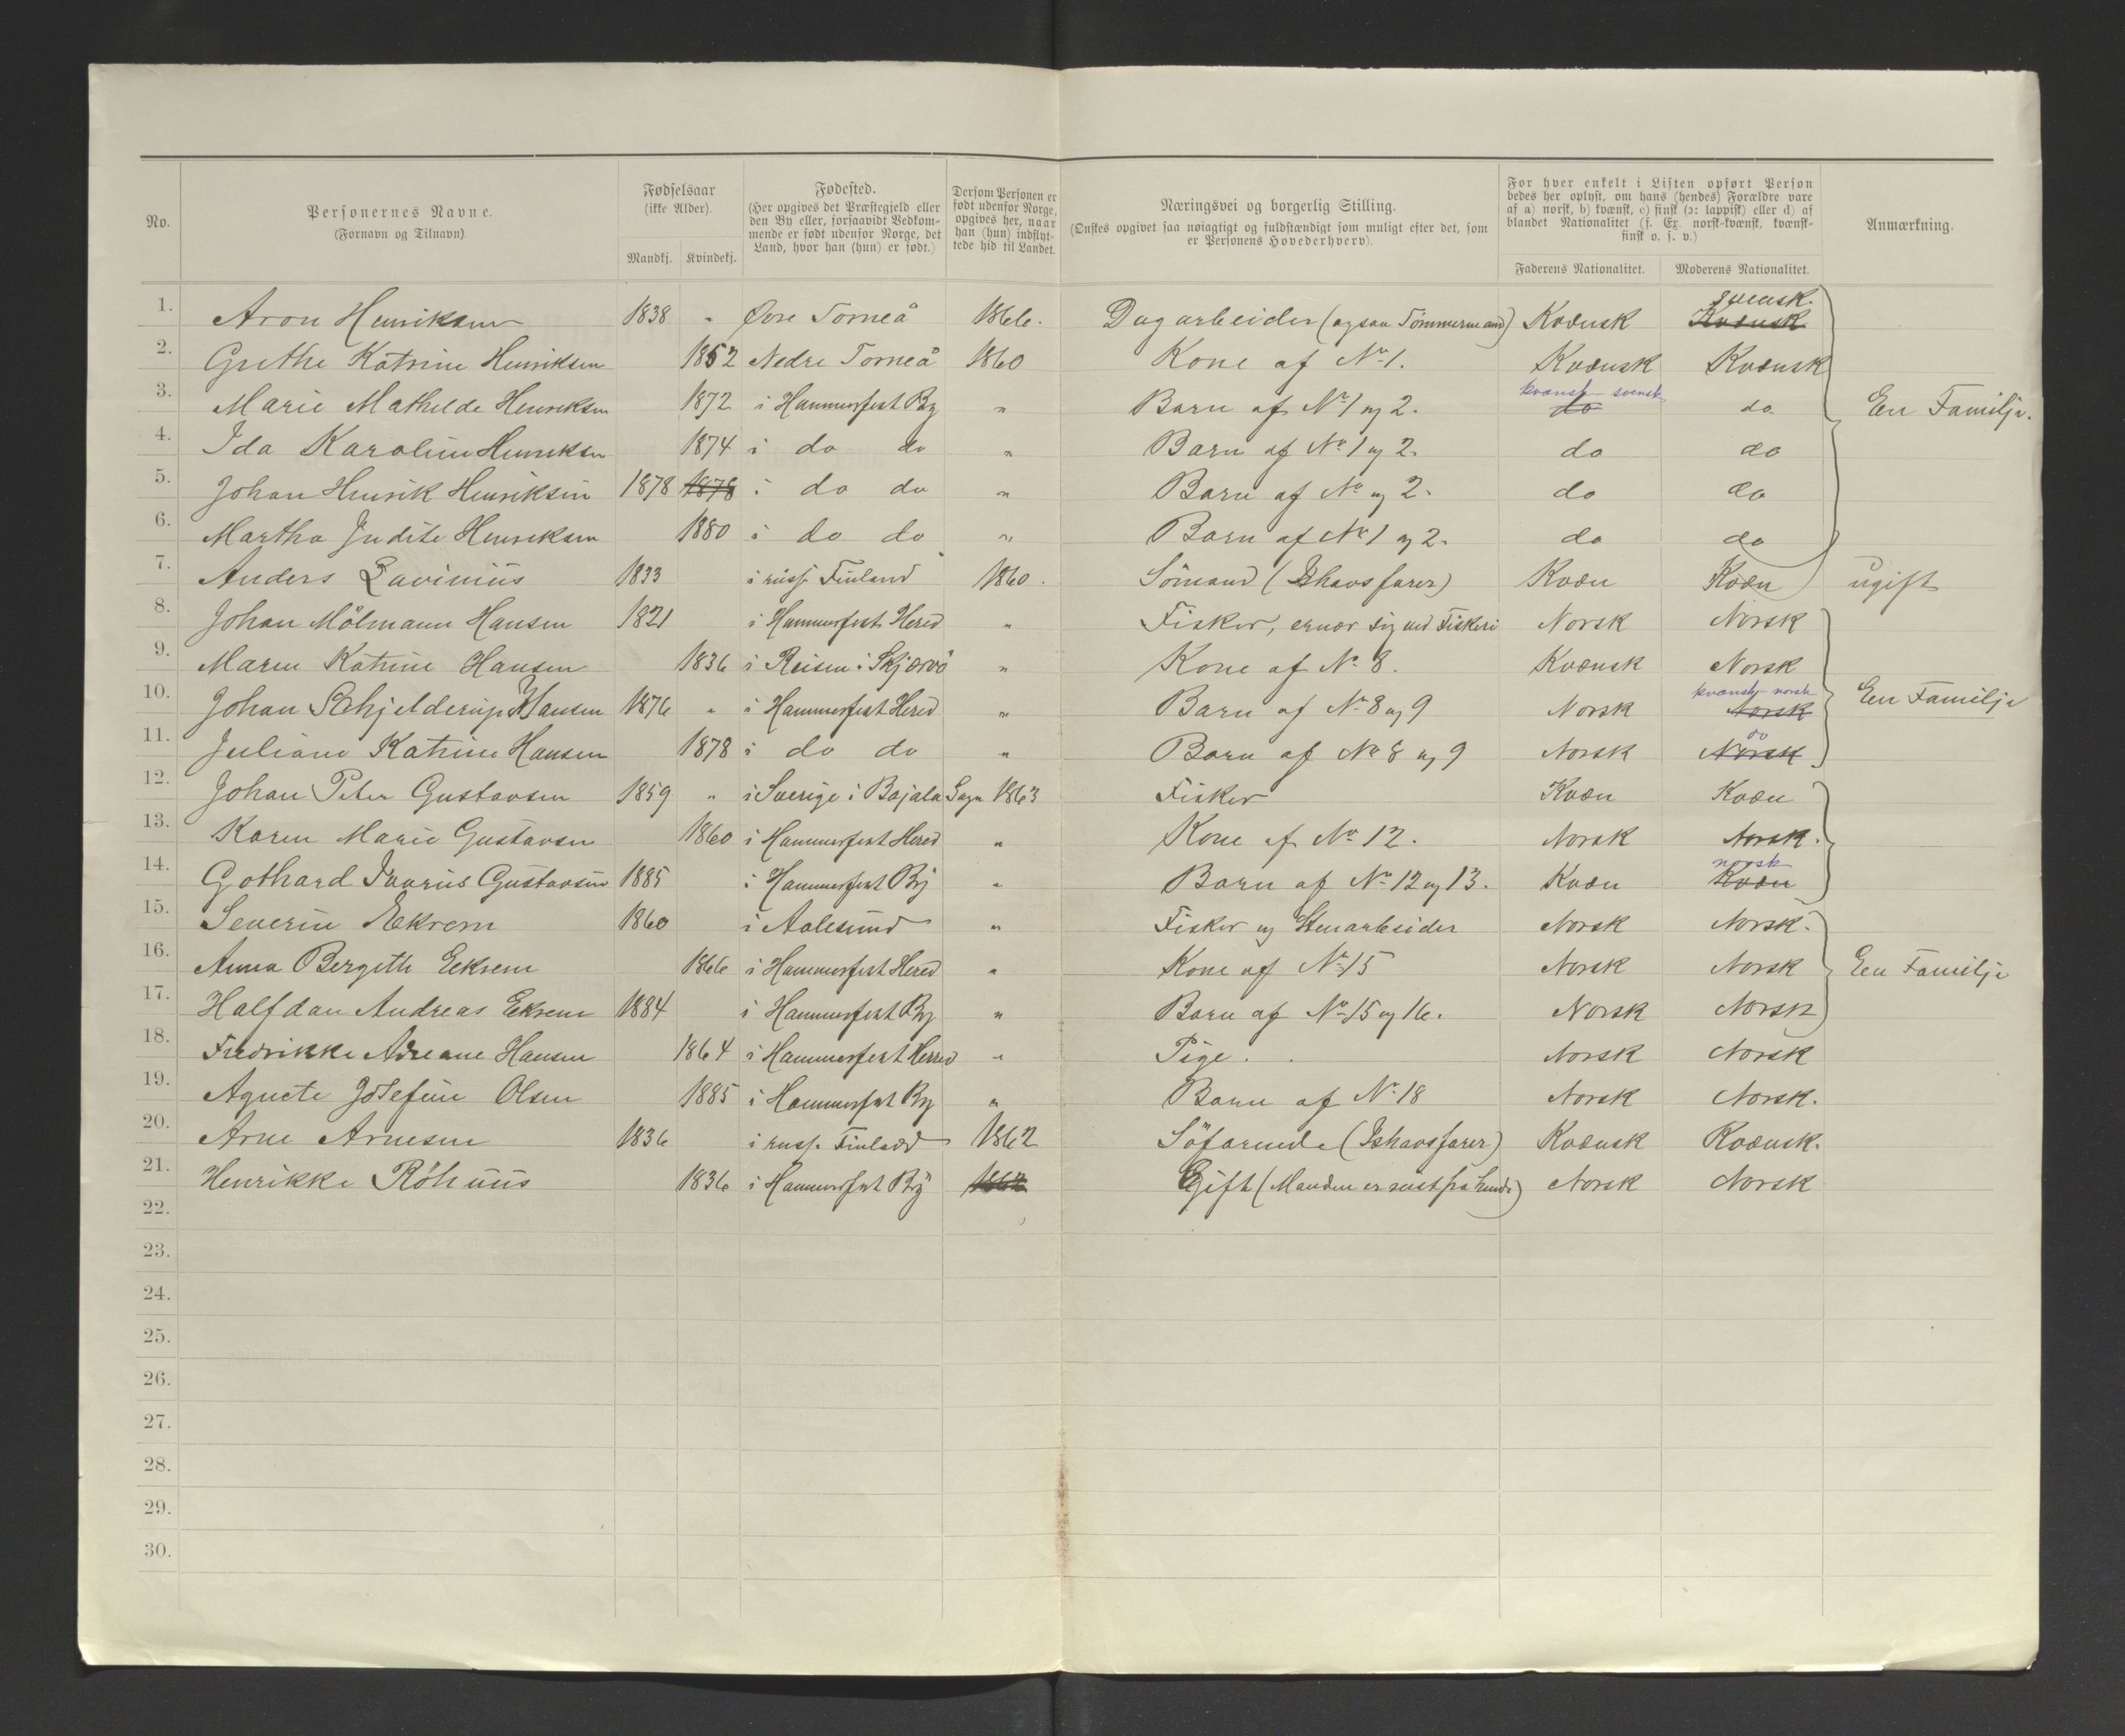 No.
Personernes Navne.
(Fornavn og Tilnavn)
Fødselsaar
(ikke Alder).
Mandkj. Kvindekj.
Fødested.
(Her opgives det Præstegjeld eller
den By eller, forsaavidt Vedkom-
mende er født udenfor Norge, det
Land, hvor han (hun) er født.)
Dersom Personen er
født udenfor Norge,
opgives her, naar
han (hun) indflyt-
tede hid til Landet.
Næringsvei og borgerlig Stilling.
(Ønskes opgivet saa nøiagtigt og fuldstændigt som muligt efter det, som
er Personens Hovederhverv).
For hver enkelt i Listen opført Person
bedes her oplyst, om hans (hendes) Forældre vare
af a) norsk, b) kvænsk, c) finsk (ɔ: lappisk) eller d) af
blandet Nationalitet (f. Ex. norsk-kvænsk, kvænsk-
finsk o. s. v.)
Faderens Nationalitet. Moderens Nationalitet.
Anmærkning.
svensk.
1. Aron Henriksen 1838 " Øvre Torneå 1866. Dagarbeider (ogsaa Tømmermand) Kvænsk Kvænsk
2. Grethe Katrine Henriksen 1852 Nedre Torneå 1860 Kone af No 1. Kvænsk Kvænsk
kvænsk svensk
3. Marie Mathelde Henriksen 1872 i Hammerfest By " Barn af No 1 og 2. do do En Familje.
4. Ida Karoline Henriksen 1874 i do do " Barn af No 1 og 2. do do
5. Johan Henrik Henriksen 1878 1878 i do do " Barn af No og 2. do do
6. Martha Judite Henriksen 1880 i do do " Barn af No 1 og 2. do do
7. Anders Lavinius 1833 i russ. Finland 1860. Sömand (Ishavsfarer) Kvæn Kvæn ugift
8. Johan Mölmann Hansen 1821 i Hammerfest Hered " Fisker, ernær sig ved Fiskeri Norsk Norsk
9. Maren Katrine Hansen 1836 i Reisen i Skjærvö " Kone af No 8. Kvænsk Norsk
kvænsk norsk
10. Johan Schjelderup Hansen 1876 " i Hammerfest Hered " Barn af No 8 og 9 Norsk Norsk En Familje
do
11. Juliane Katrine Hansen 1878 i do do " Barn af No 8 og 9 Norsk Norsk
12. Johan Peter Gustavsen 1859 " i Sverige i Bajala Sogn 1863 Fisker Kvæn Kvæn
13. Karen Marie Gustavsen 1860 i Hammerfest Hered " Kone af No 12. Norsk Norsk.
norsk
14. Gothard Gustavsen 1885 i Hammerfest By " Barn af No 12 og 13. Kvæn Kvæn
15. Severin Eekrem 1860 i Aalesund " Fisker og Stenarbeider Norsk Norsk.
16. Anna Bergith Eekrem 1866 i Hammerfest Hered " Kone af No 15 Norsk Norsk En Familje
17. Halfdan Andreas Ekrem 1884 i Hammerfest By " Barn af No 15 og 16. Norsk Norsk
18. Fredrikke Adreane Hansen 1864 i Hammerfest Herred " Pige. Norsk Norsk
19. Agnete Josefine Olsen 1885 i Hammerfest By " Barn af No 18 Norsk Norsk.
20. Arne Arnesen 1836 i russ. Finland 1862 Söfarende (Ishavsfarer) Kvænsk Kvænsk.
21. Henrikke Röhnuus 1836 i Hammerfest By 1862 Gift (Manden er reist fra hende) Norsk Norsk
22.
23.
24.
25.
26.
27.
28.
29.
30.